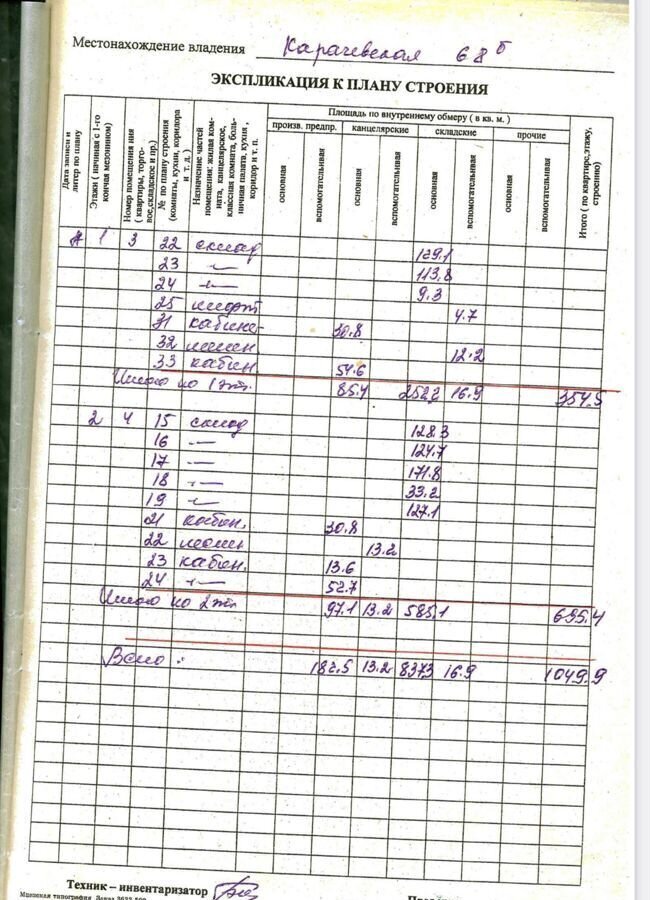 Местонахождение владения Карачевская 68 б
ЭКСПЛИКАЦИЯ К ПЛАНУ СТРОЕНИЯ
Дата записи и литер по плану
Этажи ( начиная с 1-го кончая мезонином)
Номер помещения ния ( квартиры, торгового, складское и пр.)
№ по плану строения (комнаты, кухни, коридора и т. д. )
Назначение частей помещения: жилая комната, канцелярское, классная комната, больничная палата, кухня , коридор и т. п.
Площадь по внутреннему обмеру ( в кв. м. )
произв. предпр. канцелярские складские прочие
основная вспомогательная основная вспомогательная основная вспомогательная основная вспомогательная
Итого ( по квартире, этажу, строению)
А 1 3 22 склад 129.1
23 —"— 113,8
24 —"— 9.3
25 4.7
31 кабинет 30.8
32 12.2
33 кабин. 54.6
Итого по 1 эт. 85.4 252.2 16.9 354.5
2 4 15 склад 128.3
16 —"— 124.7
17 —"— 171.8
18 —"— 33.2
19 —"— 127.1
21 кабин. 30.8
22 13.2
23 кабин. 13.6
24 —"— 52.7
Итого по 2 эт. 97.1 13.2 585,1 695.4
Всего : 182.5 13.2 837.3 16.9 1049.9
Техник – инвентаризатор
Мценская типография. Заказ